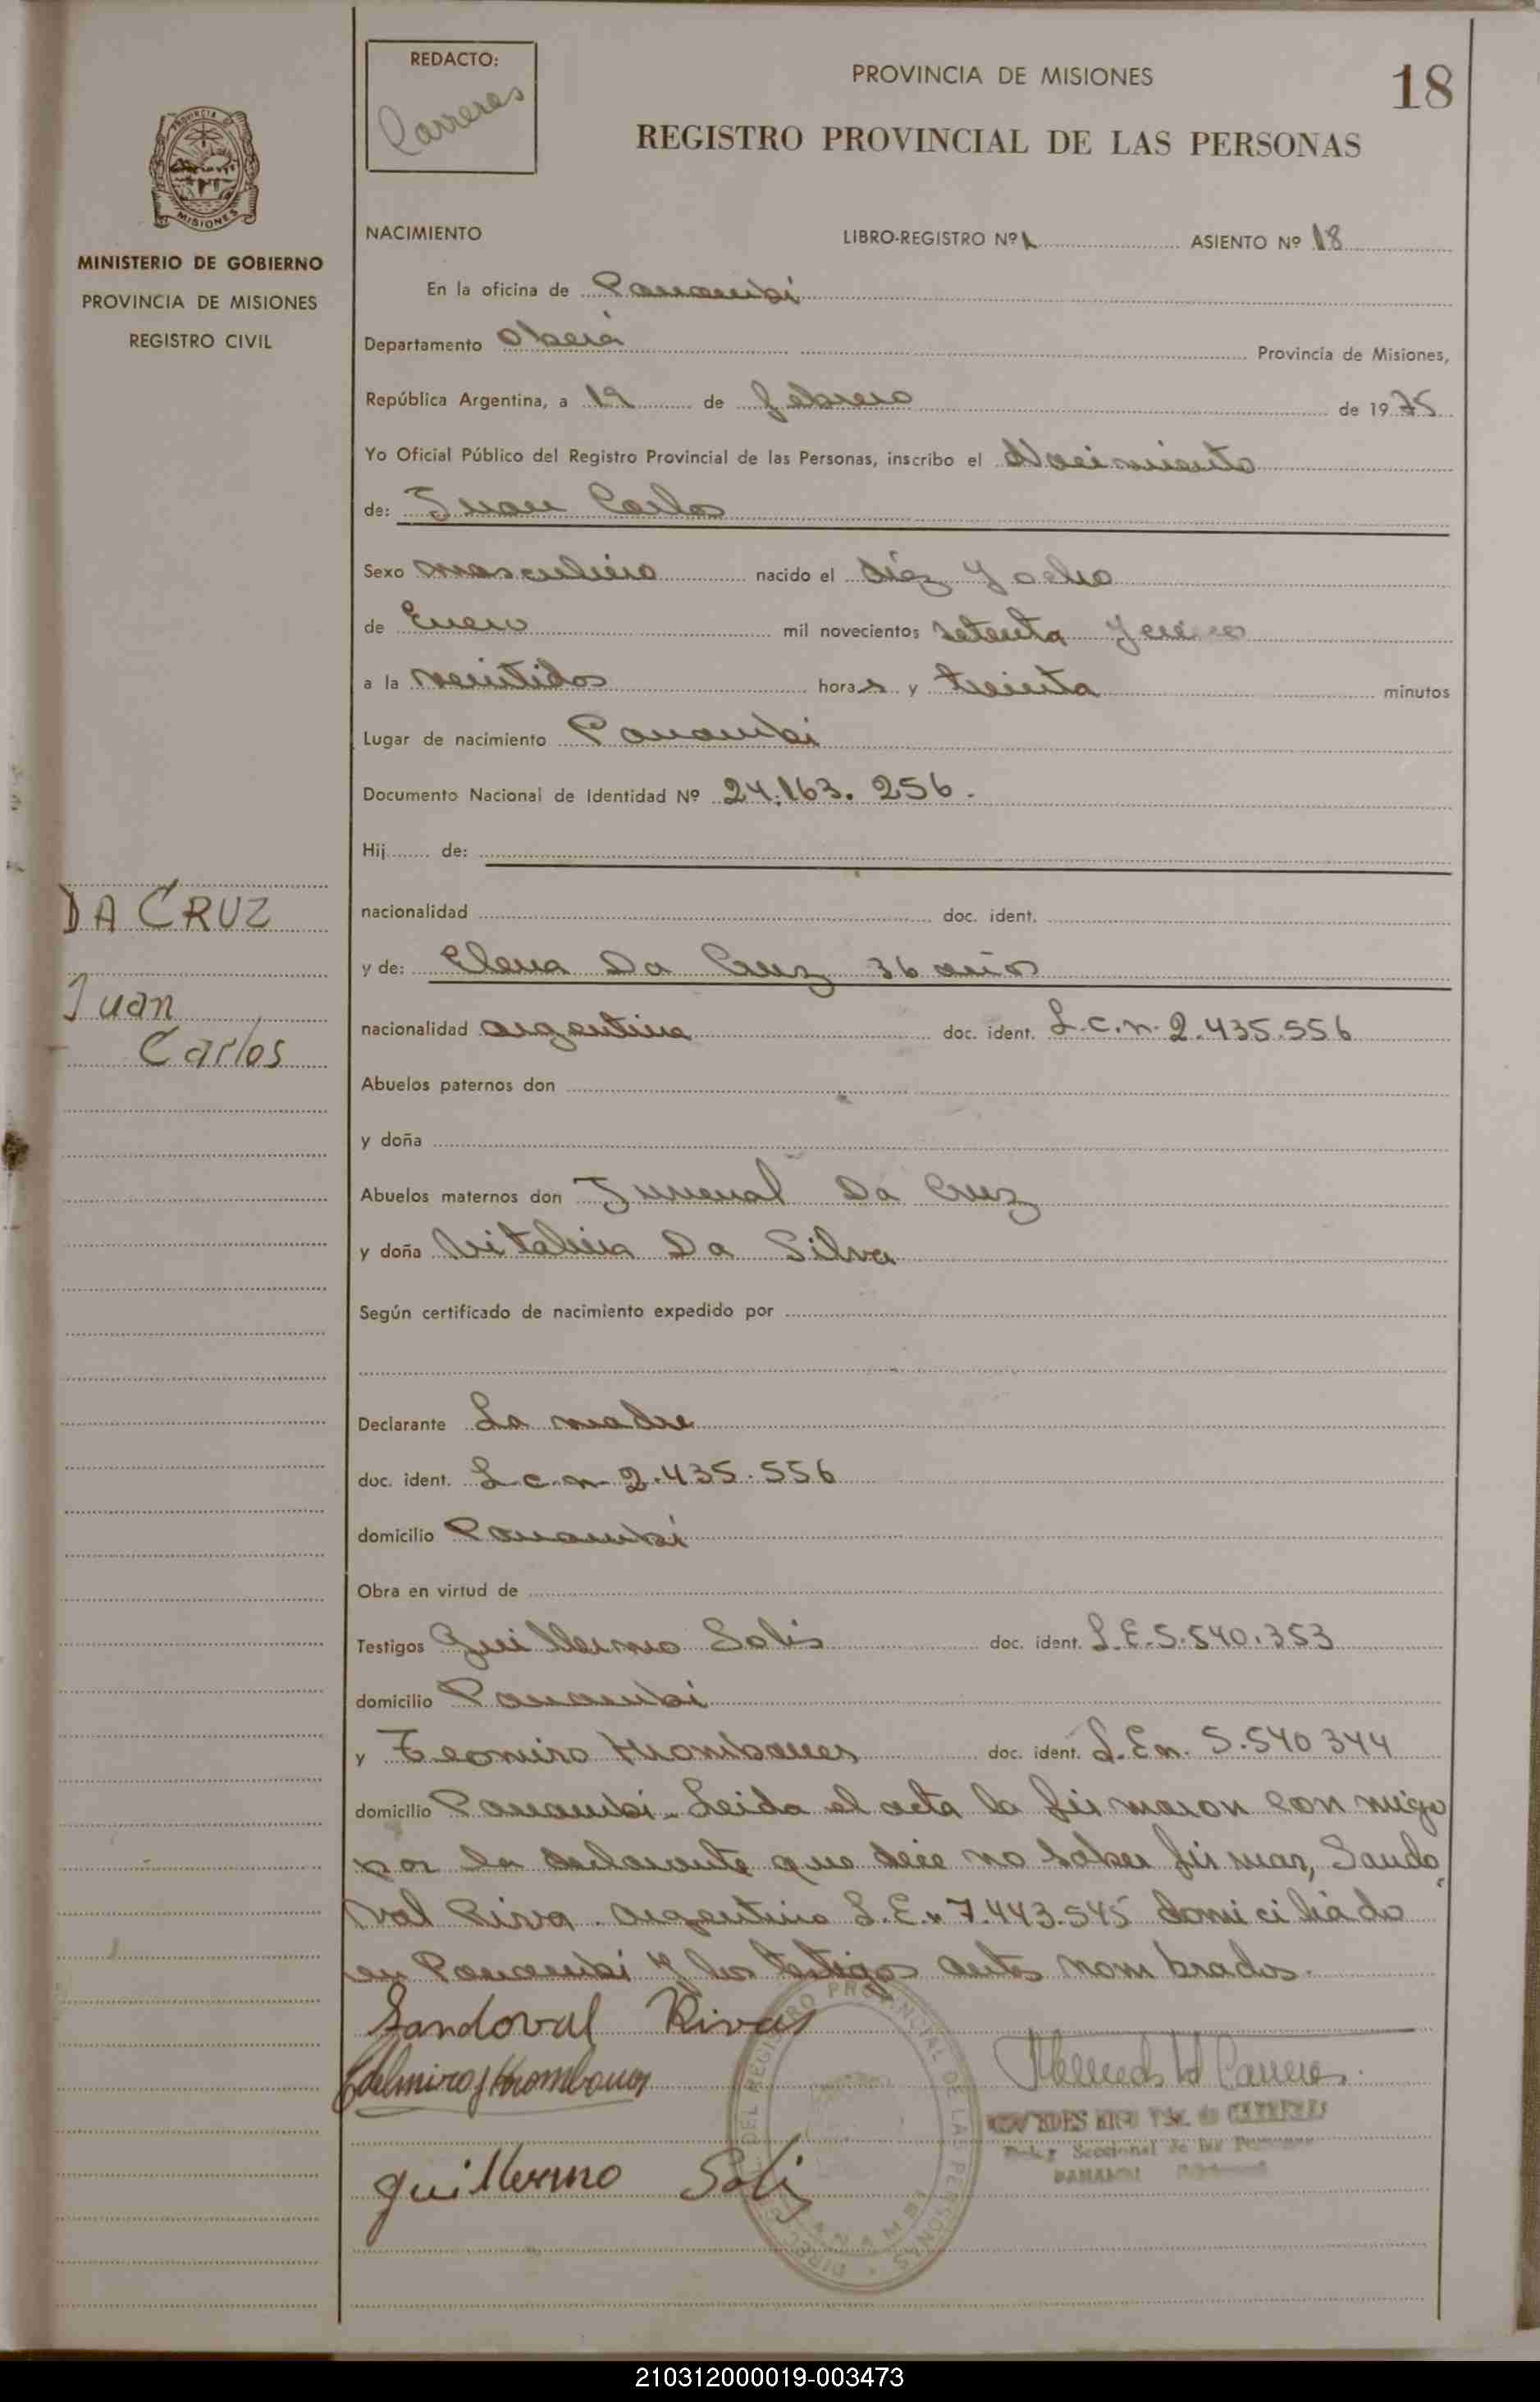 REDACTO:
Carreres
PROVINCIA DE MISIONES
18
REGISTRO PROVINCIAL DE LAS PERSONAS
PROVINCIA DE
MISIONES
MINISTERIO DE GOBIERNO
PROVINCIA DE MISIONES
REGISTRO CIVIL
NACIMIENTO LIBRO-REGISTRO Nº 1 ASIENTO Nº 18
En la oficina de Panambí
Departamento Oberá Provincia de Misiones,
República Argentina, a 19 de febrero de 1975
Yo Oficial Público del Registro Provincial de las Personas, inscribo el Nacimiento
de: Juan Carlos
Sexo masculino nacido el diez y ocho
de Enero mil novecientos setenta y cinco
a la veintidos horas y treinta minutos
Lugar de nacimiento Panambi
Documento Nacional de Identidad Nº 24.163.256.
Hij de:
DA CRUZ
nacionalidad doc. ident.
y de: Elena Da Cruz 36 años
Juan
Carlos
nacionalidad argentina doc. ident. L.C.n. 2.435.556
Abuelos paternos don
y doña
Abuelos maternos don Juvenal Da Cruz
y doña Vitalina Da Silva
Según certificado de nacimiento expedido por
Declarante La madre
doc. ident. L.c.n 2.435.556
domicilio Panambí
Obra en virtud de
Testigos Guillermo Solis doc. ident. L.E.5.540.353
domicilio Panambi
y doc. ident. L.E.n. 5.540344
domicilio Panambi. Leida el acta la firmaron con migo
por la declarante que dice no saber firmar, Sando
val Riva argentino L.E.n 7.443.545 domiciliado
en Panambi y los testigos antes nombrados.
Sandoval Rivas
Guillermo Solis
DEL REGISTRO PROVINCIAL DE LAS PERSONAS
PANAMBI
210312000019-003473